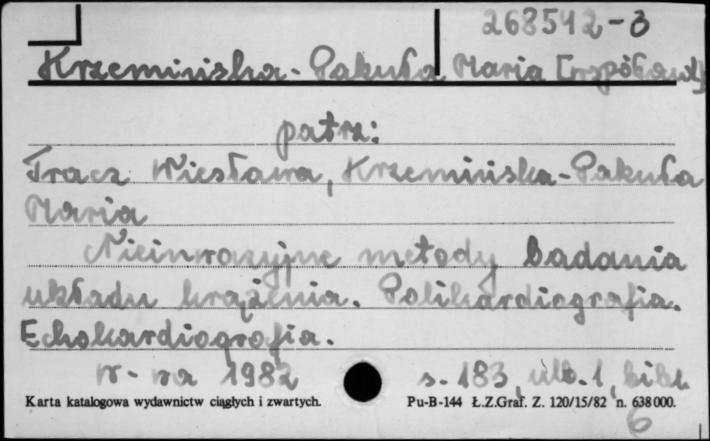 268542-3
Krzemińska-Pakuła Maria [współaut.]
patrz:
Tracz Wiesława, Krzemińska-Pakuła
Maria
Nieinwazyjne metody badania
układu krążenia. Polikardiografia.
Echokardiografia.
W-wa 1982 s. 183, ilb. 1, bibl.
Karta katalogowa wydawnictw ciągłych i zwartych. Pu-B-144 Ł.Z.Graf. Z. 120/15/82 n. 638 000.
6